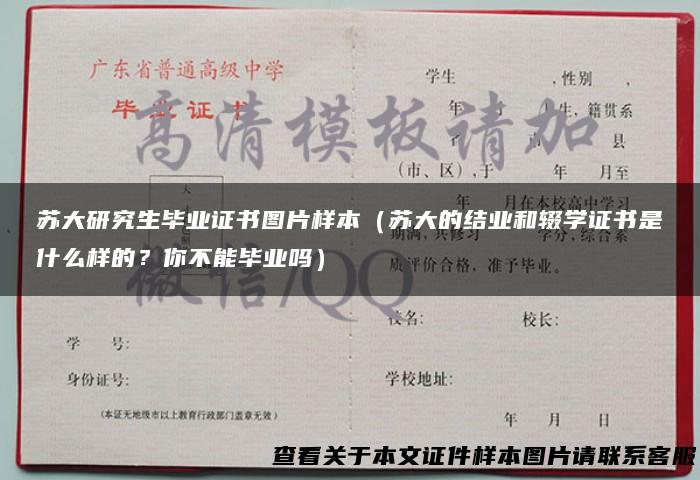 广东省普通高级中学
毕业证书
学生 ,性别 ,
年 月 生,籍贯系
省 县
(市、区),于 年 月至
年 月在本校高中学习
期满,共修习 学分,综合素
质评价合格,准予毕业。
校名: 校长:
学 号:
身份证号:
学校地址:
(本证无地级市以上教育行政部门盖章无效)
年 月 日
高清模板请加
微信/QQ
苏大研究生毕业证书图片样本(苏大的结业和辍学证书是
什么样的?你不能毕业吗)
查看关于本文证件样本图片请联系客服